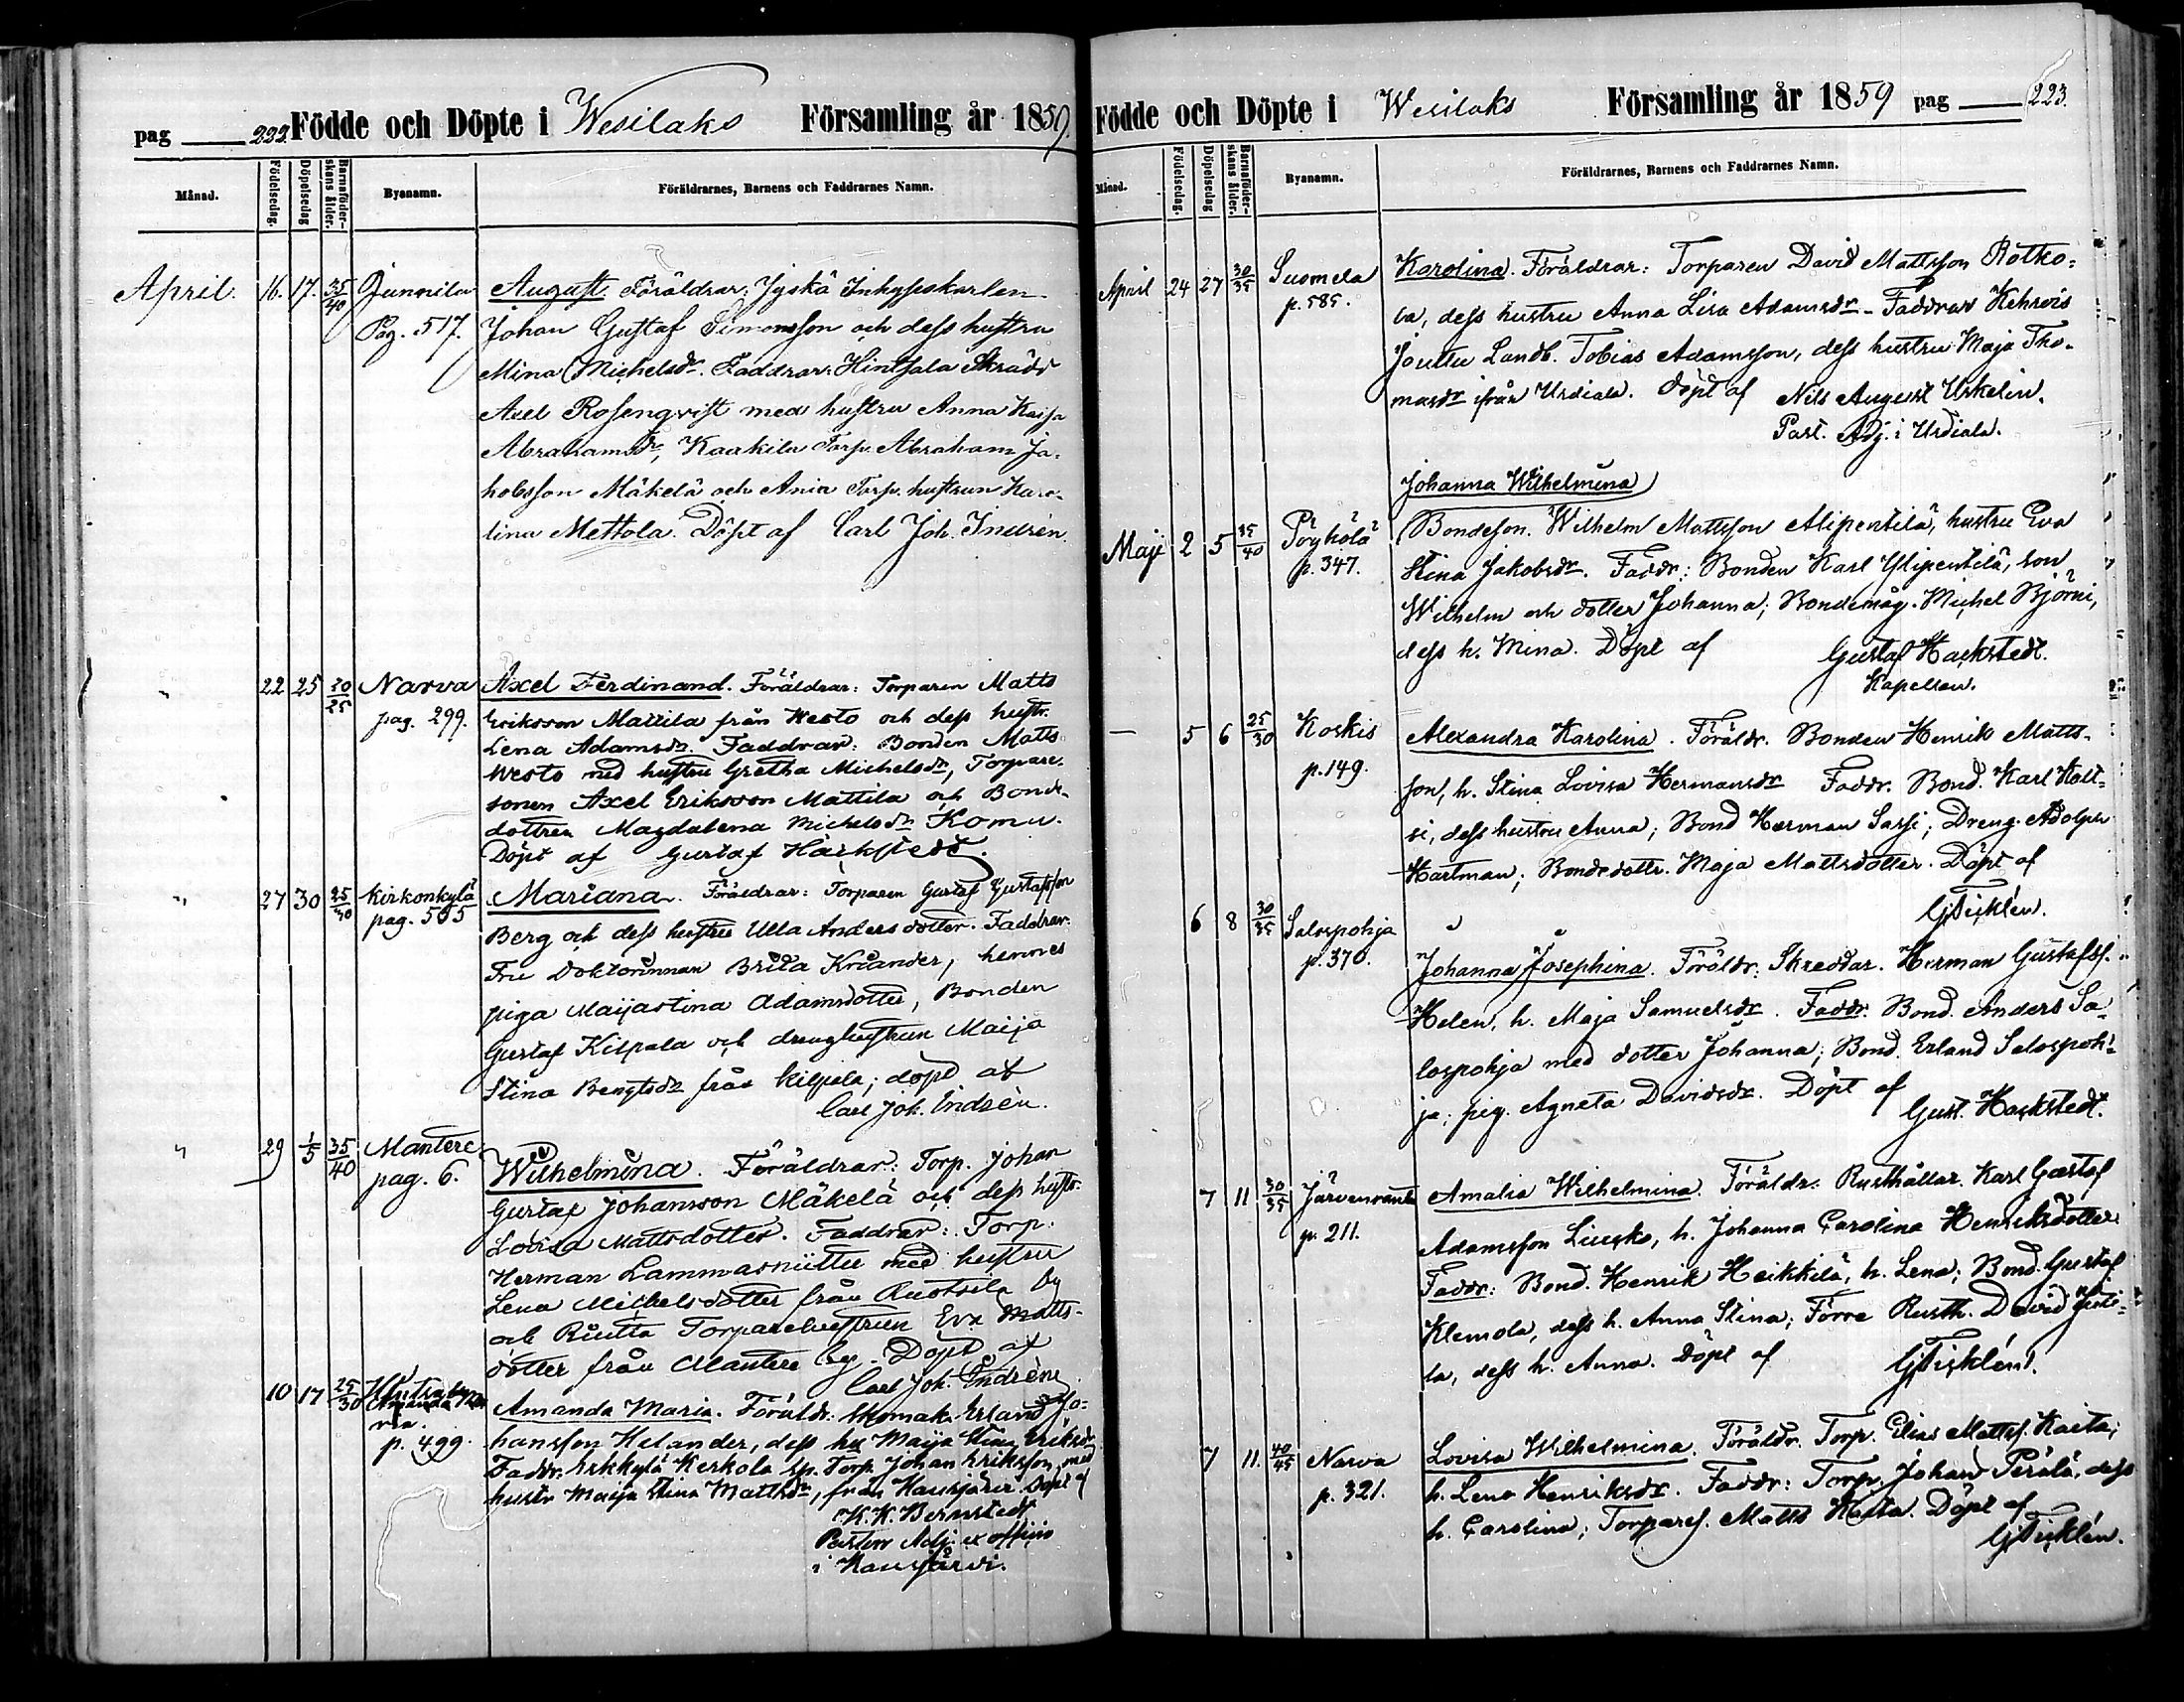 pag 223. Födde och Döpte i Wesilaks Församling år 1859.
Månad. Födelsedag. Döpelsedag Barnaföderskans ålder. Byanamn. Föräldrarnes, Barnens och Faddrarnes Namn.
April. 16. 17. 35/40 Junnila August. Föräldrar: Jyskä Inhyseskarlen
Pag. 517. Johan Gustaf Simonsson och dess hustru
Mina Michelsdr. Faddrar: Hinsala Skrädd
Axel Rosenqvist med hustru Anna Kaisa
Abrahamsdr, Kaakila Torp. Abraham Ja-
kobsson Mäkelä och Ania Torp. hustrun Karo-
lina Mettola. Döpt af Carl Joh. Indrén
" 22 25 20/25 Narva Axel Ferdinand. Föräldrar: Torparen Matts
pag. 299. Eriksson Mattila från Westo och dess hustr.
Lena Adamsdr. Faddrar: Bonden Matts
Westo med hustru Gretha Michelsdr, Torpare-
sonen Axel Eriksson Mattila och Bond-
dottren Magdalena Michelsdr Komu.
Döpt af Gustaf Hackstedt.
" 27 30 25/30 Kirkonkylä Mariana. Föräldrar: Torparen Gustaf Gustafsson
pag. 505 Berg och dess hustru Ulla Andersdotter. Faddrar:
Fru Doktorinnan Brita Kriander, hennes
piga Maijastina Adamsdotter, Bonden
Gustaf Kilpala och dränghustrun Maija
Stina Bengtsdr från Kilpala; döpt af
Carl Joh. Indrén.
" 29 1/5 35/40 Mantere Wilhelmina. Föräldrar: Torp. Johan
pag. 6. Gustaf Johansson Mäkelä och dess hustr.
Lovisa Mattsdotter. Faddrar: Torp.
Herman Lammasniittu med hustru
Lena Michelsdotter från Ruotsila by
och Riutta Torparehustrun Eva Matts-
dotter från Mantere by. Döpt af
Carl Joh. Indrén
10 17 25/30 p. 499. Amanda Maria. Föräldr: Skomak. Erland Jo-
hansson Helander, dess hu Maija Stina Eriksdr
Faddr. Erkkylä Kerkola sp. Torp. Johan Eriksson med
hustr Maija Stina Mattsdr, från Hausjärvi. Döpt af
K. K. Bernstedt
Pastors Adj. ex officio
i Hausjärvi.
Födde och Döpte i Wesilaks Församling år 1859 pag 223.
Månad. Födelsedag. Döpelsedag Barnaföderskans ålder. Byanamn. Föräldrarnes, Barnens och Faddrarnes Namn.
April 24 27 30/35 Suomela Karolina. Föräldrar: Torparen David Mattsson Rotko-
p. 585. va, dess hustru Anna Lisa Adamsdr. Faddrar Kehrois
Jouttu Landb. Tobias Adamsson, dess hustru Maja Tho-
masdr ifrån Urdiala. Döpt af Nils August Urkelin.
Past. Adj. i Urdiala.
Johanna Wilhelmina
Maji 2 5 35/40 Pöyhölä Bondeson. Wilhelm Mattsson Alipentilä, hustru Eva
p. 347. Stina Jakobsdr. Faddr: Bonden Karl Ylipentilä, son
Wilhelm och dotter Johanna; Bondemåg. Michel Björni,
dess h. Mina. Döpt af Gustaf Hackstedt.
Kapellan.
— 5 6 25/30 Koskis Alexandra Karolina. Föräldr. Bonden Henrik Matts-
p. 149. son, h. Stina Lovisa Hermansdr Faddr. Bond. Karl Kolt-
si, dess hustru Anna; Bond Herman Sassi; Dreng. Adolph
Hartman; Bondedottr. Maja Mattsdotter. Döpt af
G Ticklén.
6 8 30/35 Salospohja
p. 370. Johanna Josephina. Föräldr: Skreddar. Herman Gustafss.
Helen, h. Maja Samuelsdr. Faddr. Bond. Anders Sa-
lospohja med dotter Johanna; Bond. Erland Salospoh-
ja; pig. Agneta Davidsdr. Döpt af Gust. Hackstedt.
7 11 30/35 Järvenranta Amalia Wilhelmina. Föräldr: Rusthållar. Karl Gustaf
p. 211. Adamsson Liuçko, h. Johanna Carolina Henriksdotter
Faddr: Bond. Henrik Heikkilä, h. Lena; Bond. Gustaf
Klemola, dess h. Anna Stina; Förre Rusth. David
la, dess h. Anna. Döpt af G Ticklén.
7 11 40/45 Narva Lovisa Wilhelmina. Föräldr. Torp. Elias Mattss. Kaita;
p. 321. h. Lena Henriksdr. Faddr: Torp. Johan Perälä, dess
h. Carolina; Torpares. Matts Kaita. Döpt af
G Ticklén.